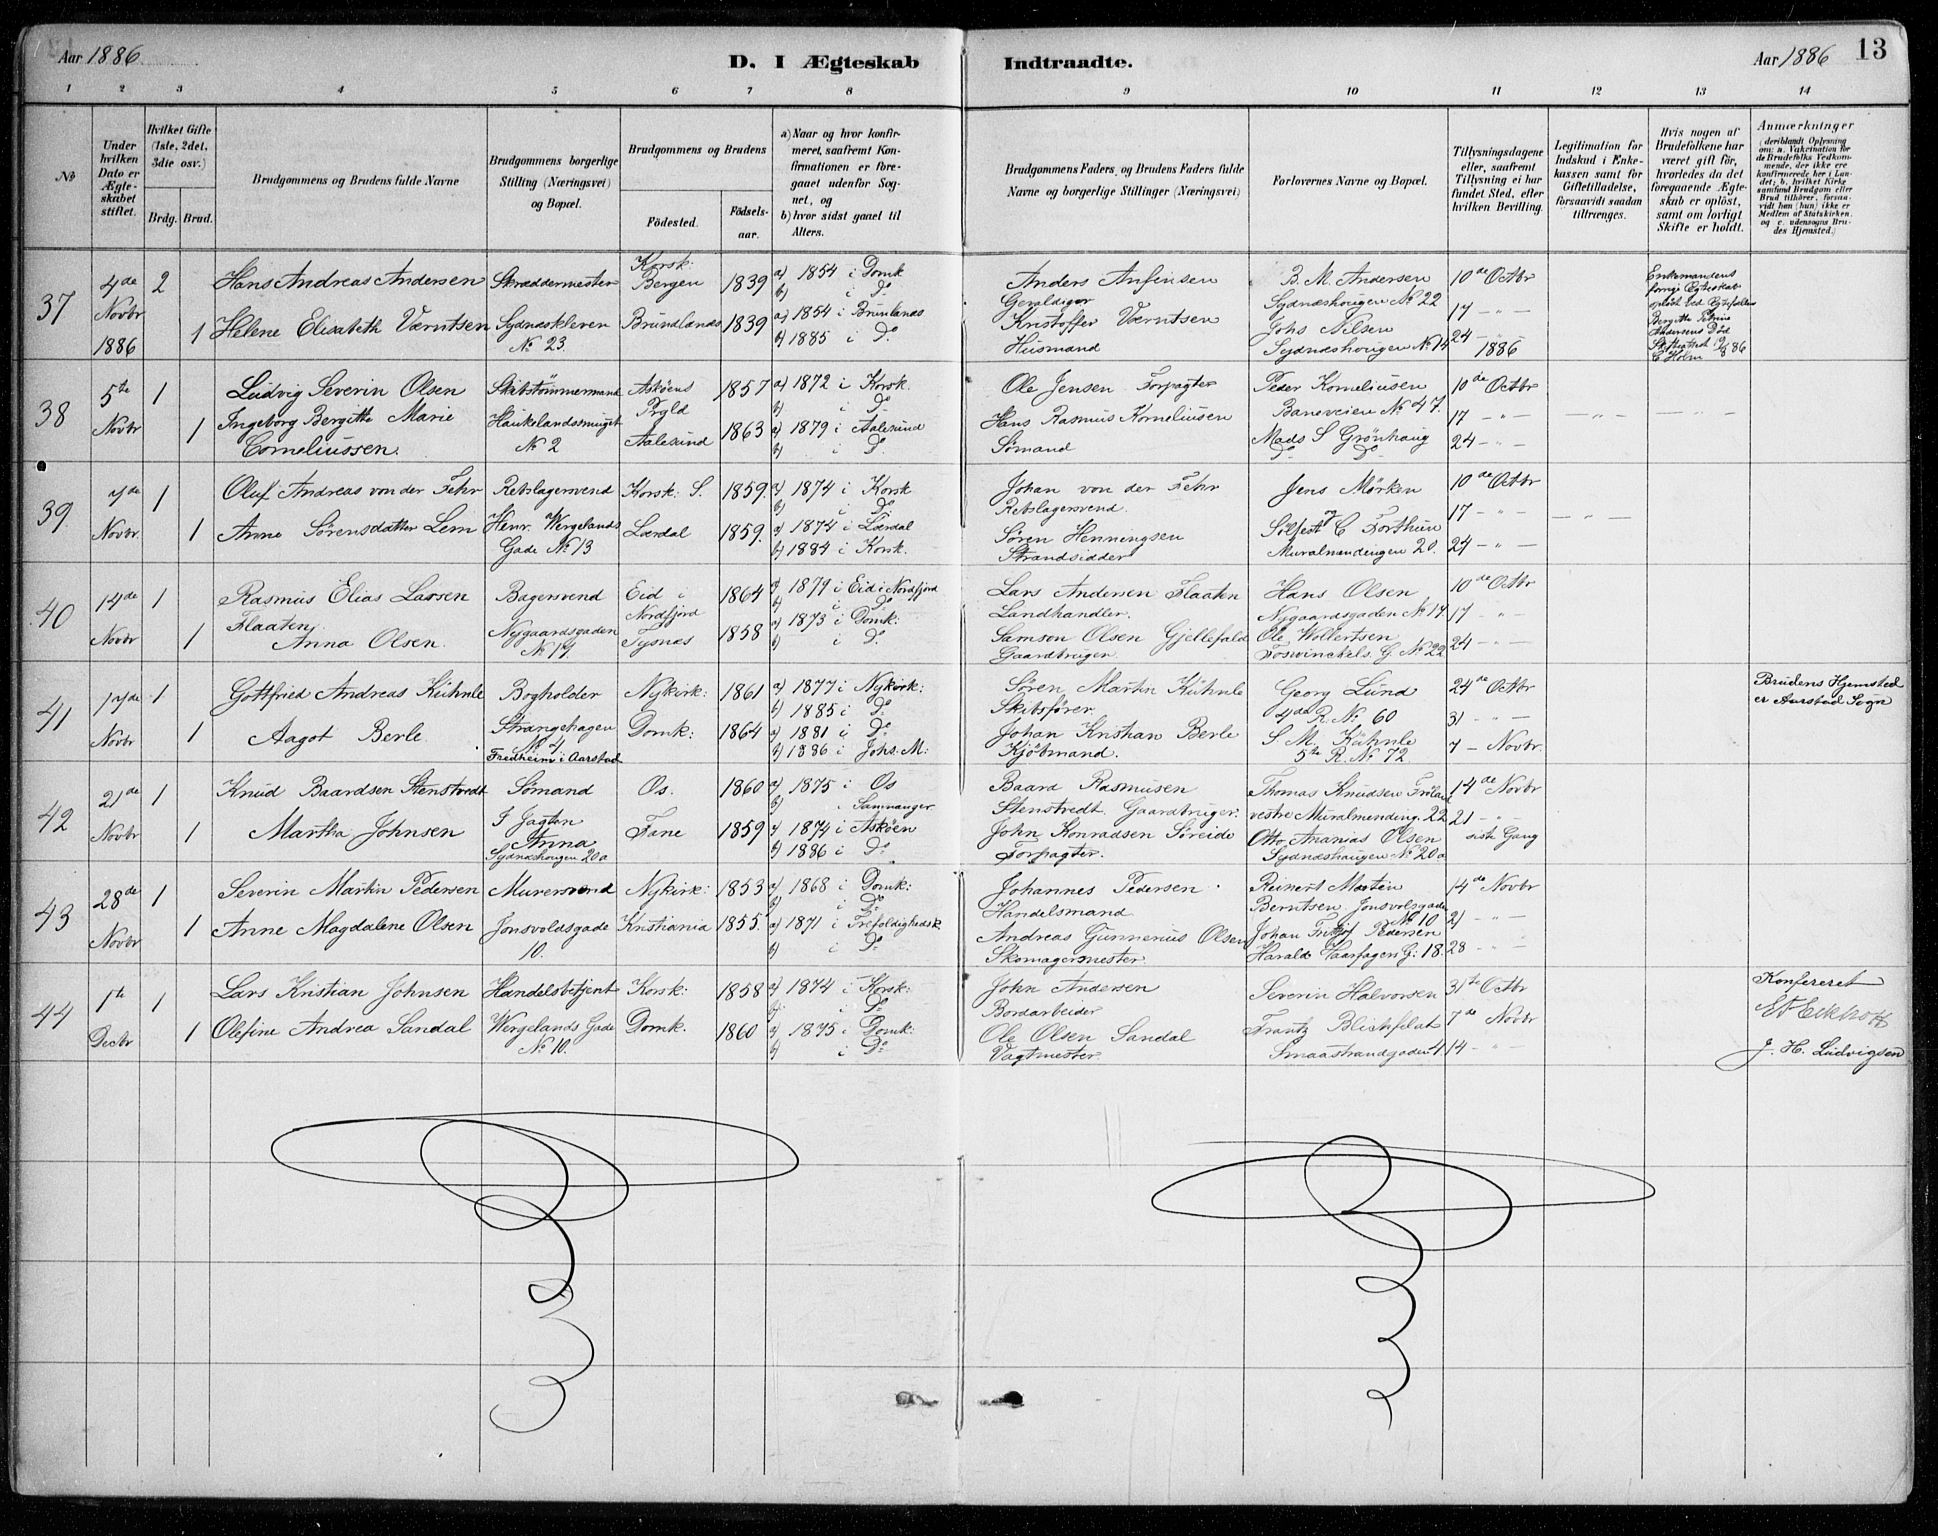 Aar 1886
D. I Ægteskab Indtraadte.
Aar 1886 13
1 2 3 4 5 6 7 8 9 10 11 12 13 14
No
Under hvilken Dato er Ægteskabet stiftet.
Hvilket Gifte (1ste, 2det, 3die osv.)
Brdg. Brud.
Brudgommens og Brudens fulde Navne
Brudgommens borgerlige Stilling (Næringsvei) og Bopæl.
Brudgommens og Brudens
Födested.
Födselsaar.
a) Naar og hvor konfirmeret, saafremt Konfirmationen er foregaaet udenfor Sognet, og
b) hvor sidst gaaet til Alters.
Brudgommens Faders, og Brudens Faders fulde Navne og borgerlige Stillinger (Næringsvei)
Forlovernes Navne og Bopæl.
Tillysningsdagene eller, saafremt Tillysning ei har fundet Sted, efter hvilken Bevilling.
Legitimation for Indskud i Enkekassen samt for Giftetilladelse, forsaavidt saadan tiltrænges.
Hvis nogen af Brudefolkene har været gift för, hvorledes da det foregaaende Ægteskab er oplöst, samt om lovligt Skifte er holdt.
Anmærkninger
(deriblandt Oplysning om: a. Vakcination for de Brudefolks Vedkommende, der ikke ere konfirmerede her i Landet; b. hvilket Kirkesamfund Brudgom eller Brud tilhörer, forsaavidt han (hun) ikke er Medlem af Statskirken, og c. udensogns Brudes Hjemsted.)
37
4de Novbr 1886
2
Hans Andreas Andersen
Skræddermester
Korsk: Bergen
1839
a) 1854 i Domk
b) i Do
Anders Anfinsen
Gevaldiger
B. M. Andersen
Sydnæshougen No 22
10de Octbr
1
Helene Elisabeth Værntsen
Sydneskleven
No 23.
Brundlands
1839
a) 1854 i Brunlands
b) 1885 i Do
Kristoffer Værntsen
Husmand
Johs Nilsen
Sydnæshougen No 14
17 - " -
24 - " -
1886
Enkemandens
forrige Egteskab
Bergitte Petrine
Andersens Död
C Holm
38
5te Novbr
1
Ludvig Severin Olsen
Skibstömmermand
Askøens Prgld
1857
a) 1872 i Korsk
b) i Do
Ole Jensen Forpagter
Peder Korneliusen
Baneveien No 47.
10de Octbr
1
Ingeborg Bergitte Marie
Corneliussen.
Haukelandssmuget
No 2
Aalesund
1863
a) 1879 i Aalesund
b) i Do
Hans Rasmus Korneliusen
Sømand
Mads S Grönhaug
Do Do
17 - " -
24 - " -
- " -
- " -
39
7de Novbr.
1
Oluf Andreas von der Fehr
Rebslagersvend
Korsk: S.
1859.
a) 1874 i Korsk
b) i Do
Johan von der Fehr
Rebslagersvend.
Jens Mörken
10de Octbr
1
Anne Sörensdatter Lem
Henr. Wergelands
Gade No 13
Lærdal
1859.
a) 1874 i Lærdal
b) 1884 i Korsk.
Søren Henningsen
Strandsidder
og
Sölfest C Forthun
Muralmendingen 20.
17 - " -
24 - " -
- " -
40
14de Novbr
1
Rasmus Elias Larsen
Flaaten
Bagersvend
Eid i Nordfjord
1864
a) 1879 i Eid i Nordfjord
b) i Do
Lars Andersen Flaaten
Landhandler.
Hans Olsen
Nygaardsgaden No 17
10de Octbr
1
Anna Olsen.
Nygaardsgaden
No 17.
Tysnæs
1858
a) 1873 i Domk:
b) i Do
Samson Olsen Gjellefald
Gaardbruger.
Ole Wollertsen
Foswinckels. G. No 22
17 "
24 - " -
41
17de Novbr
1
Gottfried Andreas Kühnle
Bogholder
Nykirk:
1861
a) 1877 i Nykirk:
b) 1885 i Do
Søren Martin Kühnle
Skibsfører
Georg Lund
4de R. No 60
24de Octbr
Brudens Hjemsted
er Aarstad Sogn
1
Aagot Berle
Strangehagen
No 4
Fredheim i Aarstad
Domk:
1864
a) 1881 i Do
b) 1886 i Johs. M:
Johan Kristian Berle
Kjöbmand.
S M. Kühnle
5te R. No 72
31 - " -
7 - Novbr.
42
21de Novbr
1
Knud Baardsen Stenstvedt
Sömand
Os.
1860
a) 1875 i Os
b) i Samnanger
Baard Rasmusen
Stenstvedt Gaardbruger.
Thomas Knudsen Fröland
vestre Muralmending. 22
14de Novbr
1
Martha Johnsen
I Jagten
Anna
Sydnæshougen 20a
Fane
1859
a) 1874 i Askøen
b) 1886 i Do
John Konradsen Søreide
Forpagter.
Otto Ananias Olsen
Sydnæshaugen No 20a
21 - " -
siste Gang
43
28de Novbr
1
Severin Martin Pedersen
Murersvend
Nykirk:
1853
a) 1868 i Domk:
b) i Do
Johannes Pedersen
Handelsmand
Reinert Martin
Berntsen Jonsvolsgaden
No 10.
14de Novbr
1
Anne Magdalene Olsen
Jonsvoldsgade
10.
Kristiania
1855.
a) 1871 i Trefoldighedsk
b) i Do
Andreas Gunnerius Olsen
Skomagermester.
Johan Fritjof Pedersen
Harald Haarfagers G: 18.
21 - " -
28 - " -
44
1te Decbr
1
Lars Kristian Johnsen
Handelsbetjent
Korsk:
1858
a) 1874 i Korsk:
b) i Do
John Andersen
Bordarbeider
Severin Halvorsen
31te Octbr
Konfereret
1
Olefine Andrea Sandal
Wergelands Gade
No 10.
Domk.
1860
a) 1875 i Domk:
b) i Do
Ole Olsen Sandal
Vagtmester.
Frantz Blichfelat
Smaastrandgaden 4.
7de Novbr
14 - " -
J. H. Ludvigsen